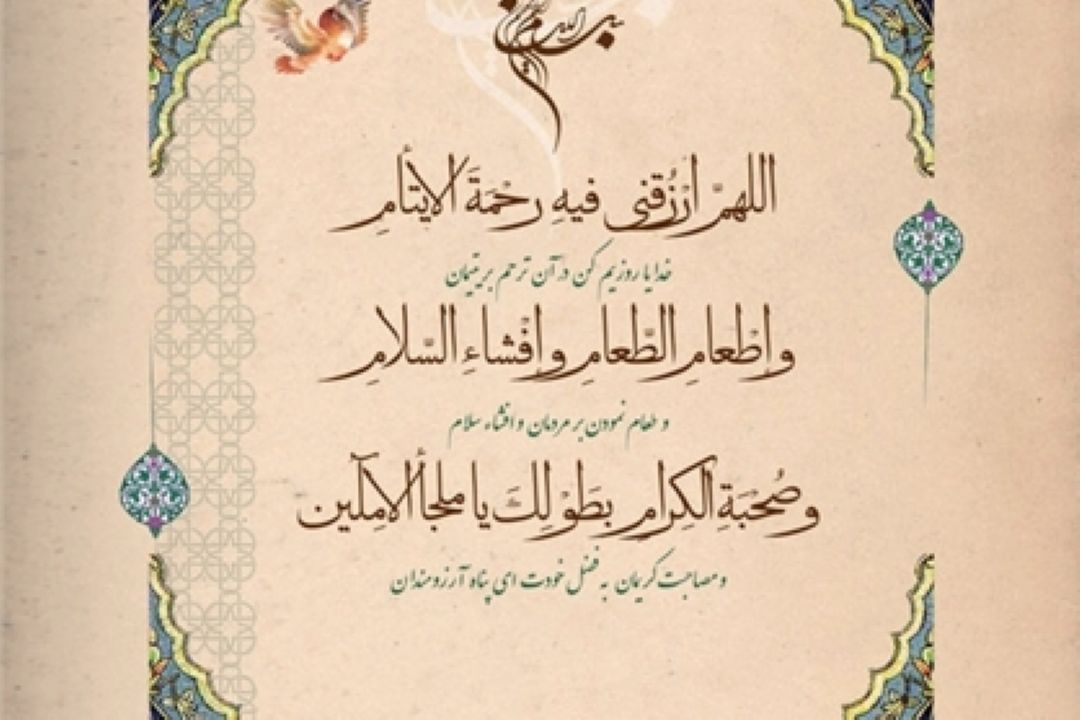 اللهمَّ ارْزُقنی فیهِ رحْمَةَ الأیتامِ
خدایا روزیم کن در آن ترحم بر یتیمان
وإطْعامِ الطّعامِ وإفْشاءِ السّلامِ
و طعام نمودن بر مردمان و افشاء سلام
وصُحْبَةِ الکِرامِ بِطَوْلِکَ یا ملجأ الآمِلین
و مصاحبت کریمان به فضل خودت ای پناه آرزومندان